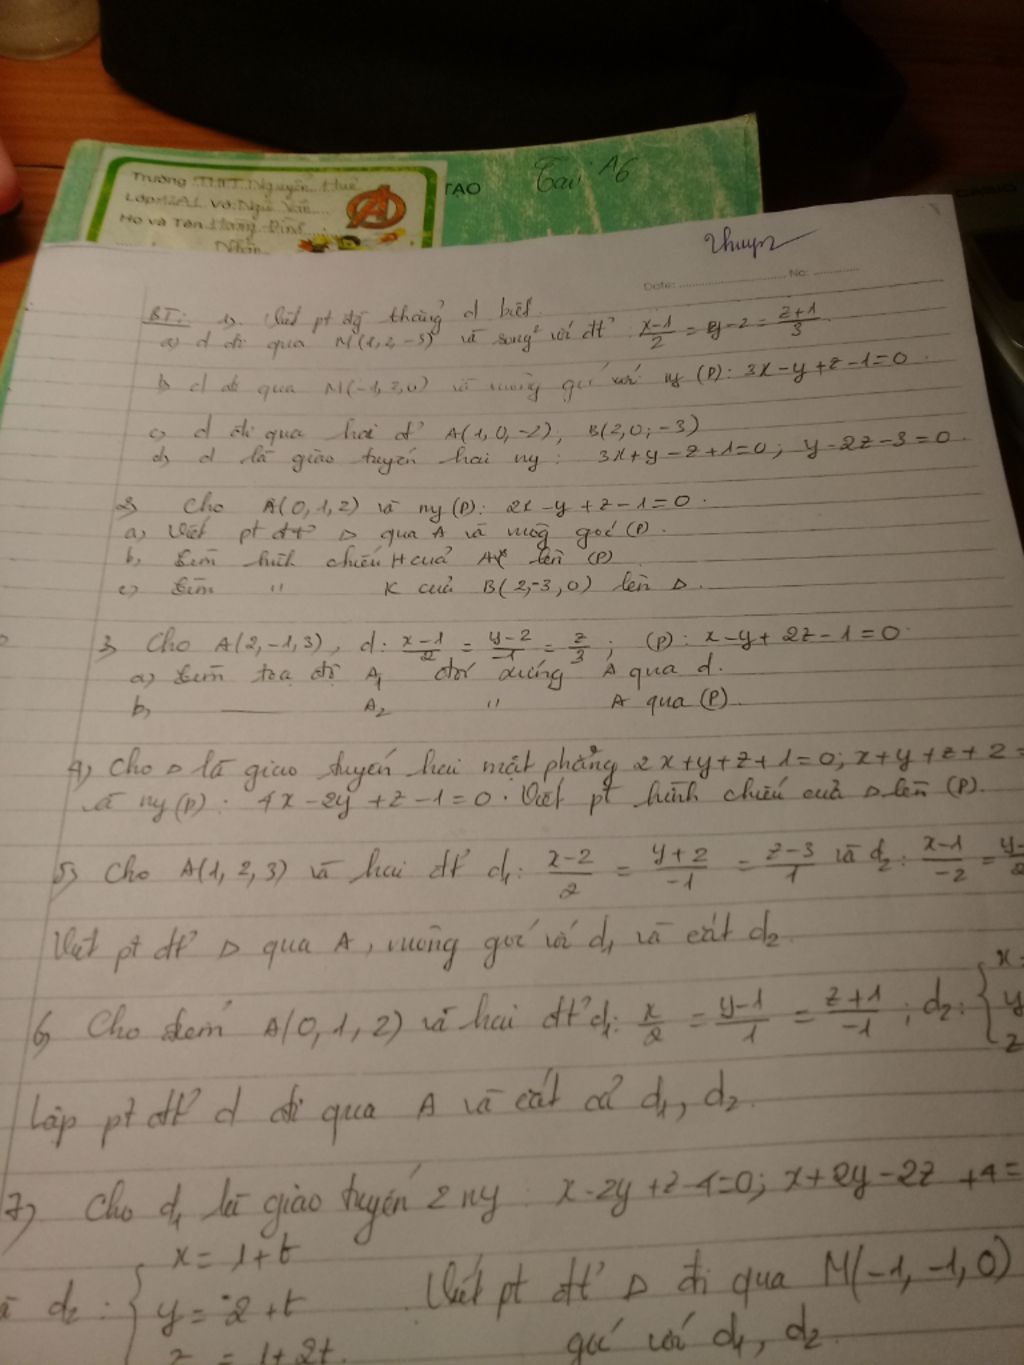 Trường THPT Nguyễn Huệ
Lớp: 12A1 Vở: Ngữ Văn
Họ và Tên: Hoàng Đình
Nhân
TẠO
A6
CASIO
Date: No:
BT: 1, Viết pt đg thẳng d biết
a) d đi qua M(1, 2, -3) và song² với đt x-1/2 = y-2 = z+1/3
b, d đi qua M(-1, 2, 0) và vuông góc với mp (P): 3x-y+z-1=0
c, d đi qua hai đ' A(1, 0, -2); B(2, 0, -3)
d, d là giao tuyến hai mp: 3x+y-z+1=0; y-2z-3=0
2, Cho A(0, 1, 2) và mp (P): 2x-y+z-1=0.
a, Viết pt đt Δ qua A và vuông góc (P).
b, Tìm hình chiếu H của A lên (P)
c, Tìm " K của B(2,-3,0) lên Δ.
3, Cho A(2,-1,3), d: x-1/2 = y-2/-1 = z/3; (P): x-y+2z-1=0
a, Tìm toạ độ A₁ đối xứng A qua d.
b, — A₂ " A qua (P)
4, Cho Δ là giao tuyến hai mặt phẳng 2x+y+z+1=0; x+y+z+2=
và mp (P): 4x-2y+z-1=0. Viết pt hình chiếu của Δ lên (P).
5, Cho A(1, 2, 3) và hai đt d₁: x-2/2 = y+2/-1 = z-3/1 và d₂: x-1/-2 = y-
Viết pt đt Δ qua A, vuông góc với d₁ và cắt d₂
6, Cho điểm A(0, 1, 2) và hai đt d₁: x/2 = y-1/1 = z+1/-1; d₂: { x=
y
z
Lập pt đt d đi qua A và cắt cả d₁, d₂.
7, Cho d₁ là giao tuyến 2 mp: x-2y+z-4=0; x+2y-2z+4=
x=1+t
d₂: { y=-2+t . Viết pt đt Δ đi qua M(-1, -1, 0)
z=1+2t. góc với d₁, d₂.